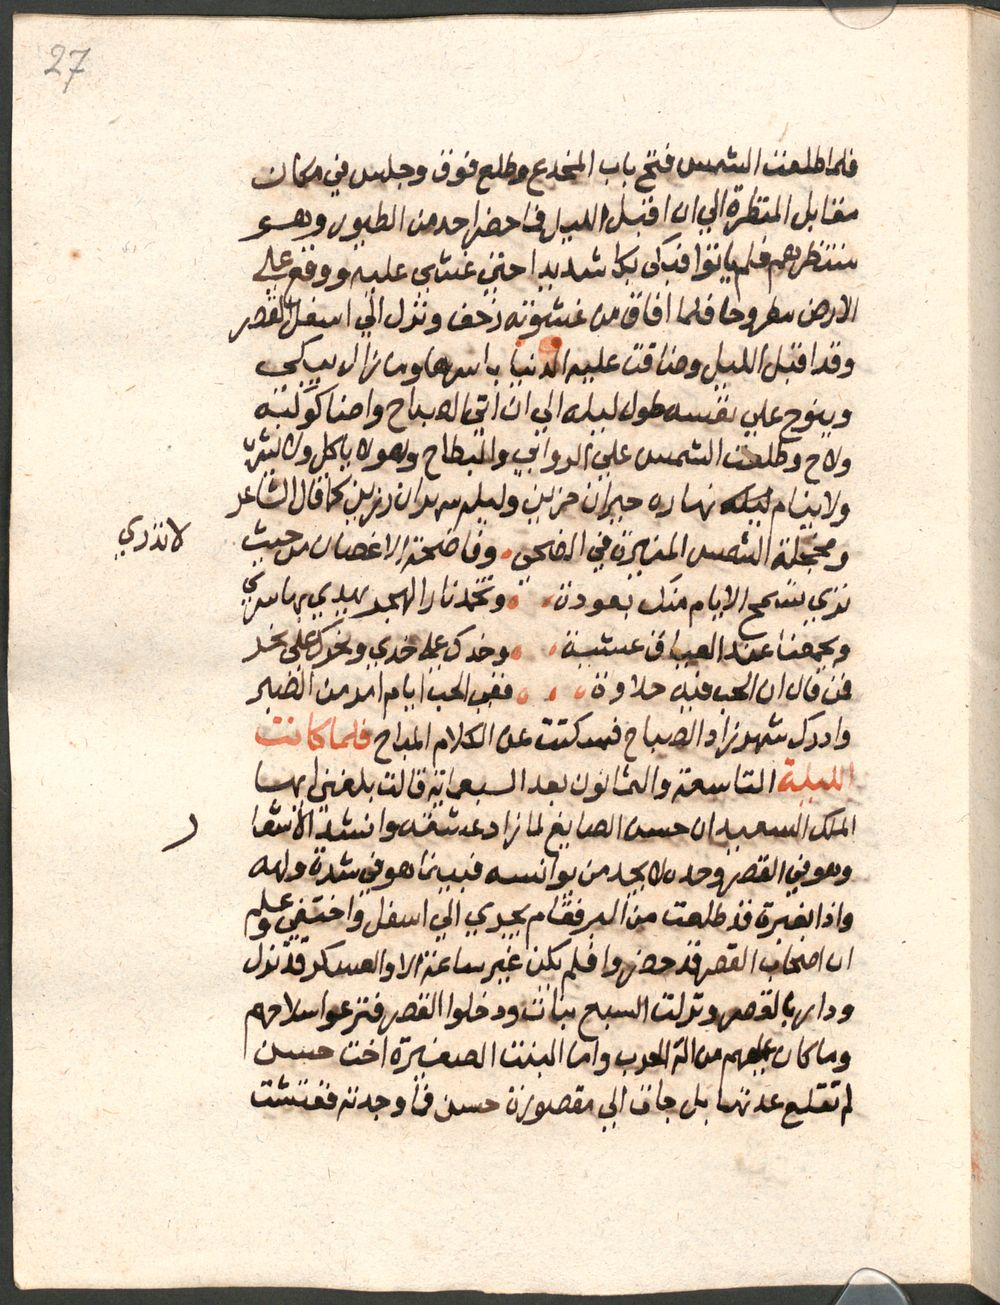 27
فلما طلعت الشمس فتح باب المخدع وطلع فوق وجلس في مكان
مقابل المنظرة الي ان اقبل الليل فما حضر احد من الطيور وهو
ينتظرهم فلم ياتوا فبكى بكا شديدا حتى غشى عليه ووقع على
الارض مطروحا فلما افاق من غشوته زحف ونزل الي اسفل القصر
وقد اقبل الليل وضاقت عليه الدنيا باسرها وما زال يبكي
وينوح علي نفسه طول ليله الي ان اتي الصباح واضا كوكبه
ولاح وطلعت الشمس علي الروابي والبطاح وهو لا ياكل ولا يشرب
ولا ينام ليله نهاره حيران حزين وليله سهران كما قال الشاعر
ومخجلة الشمس المنيرة في الضحي وفاضحة الاغصان من حيث
لا تدري
تري تسمح الايام منك بعودة وتخمد نار الهجر
وتجمعنا عند العناق عشية وخدك على خدي ونحرك على نحر
فمن قال ان الحب فيه حلاوة ففي الحب ايام امر من الصبر
وادرك شهرزاد الصباح فسكتت عن الكلام المباح فلما كانت
الليلة التاسعة والثمانون بعد السبعماية قالت بلغني ايها
الملك السعيد ان حسن الصايغ لما زاد عشقه وانشد الاشعا
ر
وهو في القصر وحده لا يجد من يوانسه فبينما هو في شدة ولهه
واذا بغبرة قد طلعت من البر فقام يجري الي اسفل واختفي وعلم
ان اصحاب القصر قد حضروا فلم يكن غير ساعة الا والعسكر قد نزل
ودار بالقصر ونزلت السبع بنات ودخلوا القصر فنزعوا سلاحهم
وما كان عليهم من الة الحرب واما البنت الصغيرة اخت حسن
لم تقلع عدتها بل جات الي مقصورة حسن فما وجدته ففتشت